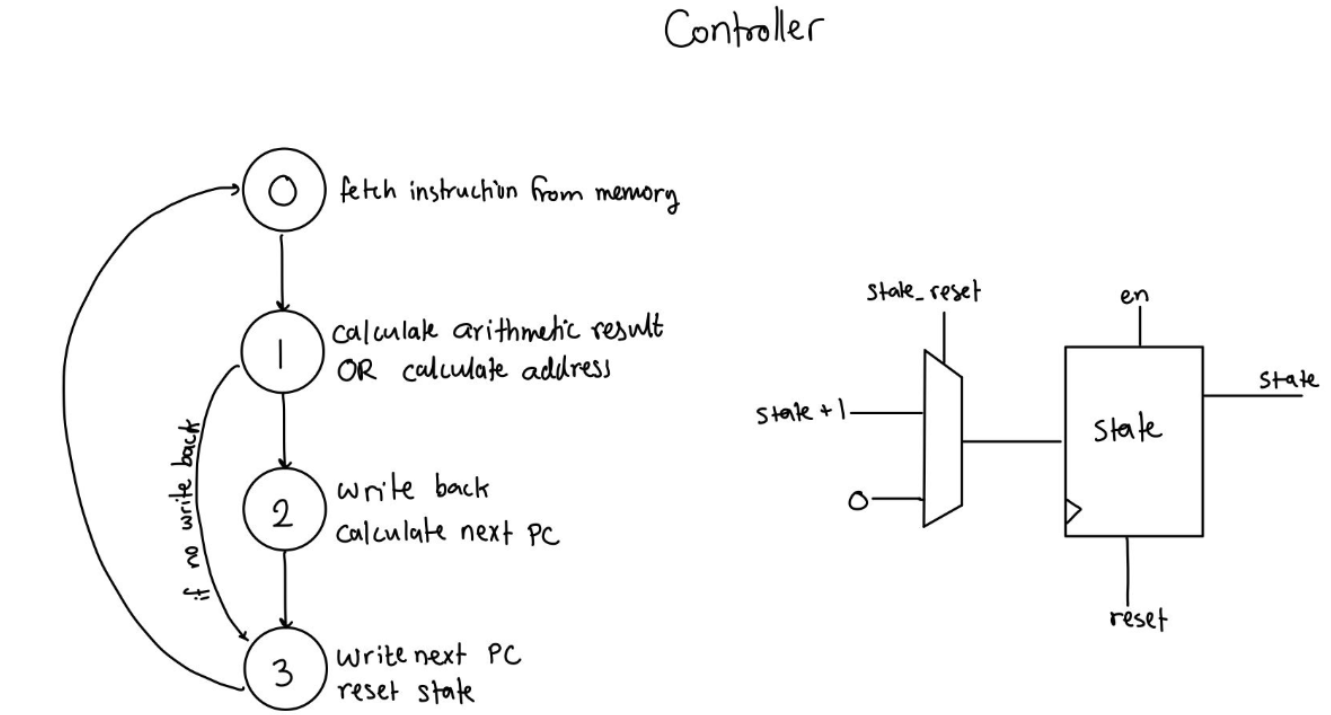 Controller
0
fetch instruction from memory
1
calculate arithmetic result
OR calculate address
if no write back
2
write back
calculate next PC
3
write next PC
reset state
state_reset
state + 1
0
en
state
state
reset